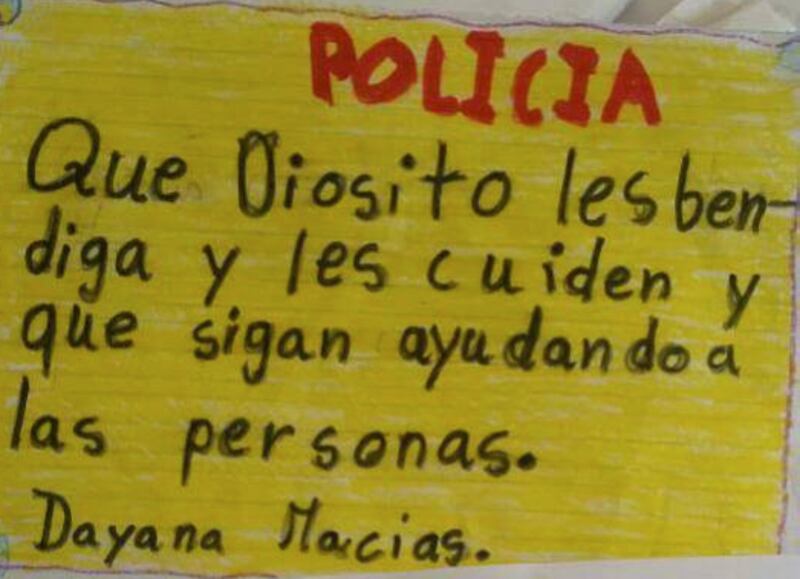 POLICIA
Que Diosito les ben-
diga y les cuiden y
que sigan ayudando a
las personas.
Dayana Macias.